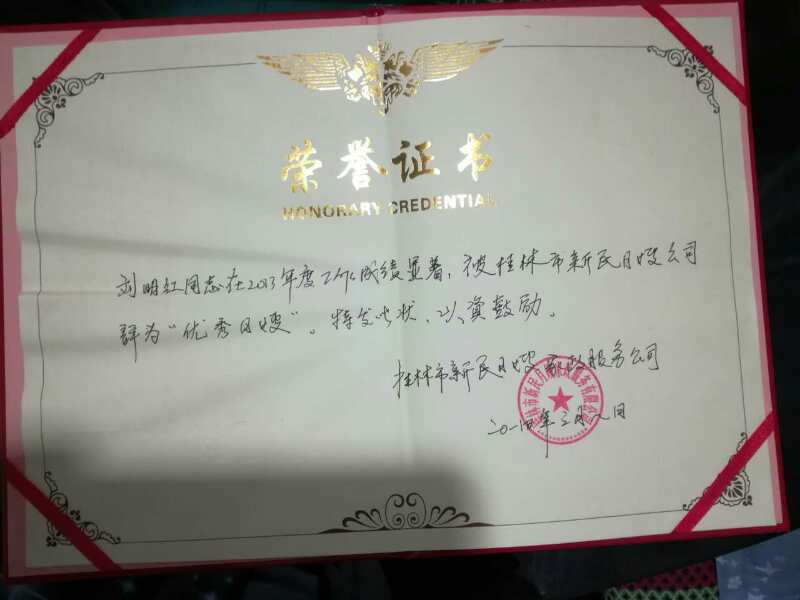 荣誉证书
HONORARY CREDENTIAL
刘明红同志在2013年度工作成绩显着，被桂林市新民月嫂公司
群为“优秀月嫂”。特发此状，以资鼓励。
桂林市新民月嫂家政服务公司
二〇一四年三月八日